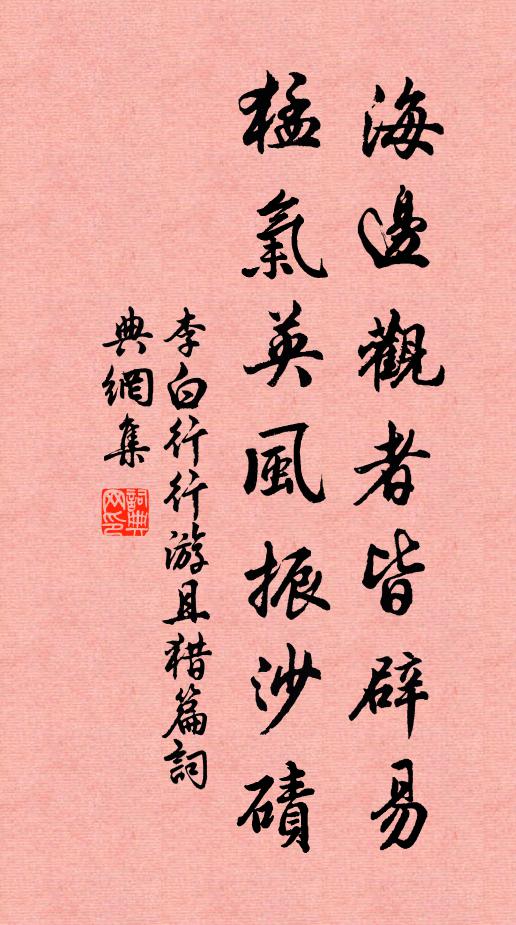 海邊觀者皆辟易
猛氣英風振沙磧
李白行行游且猎篇詞
典網集
詞典
网印